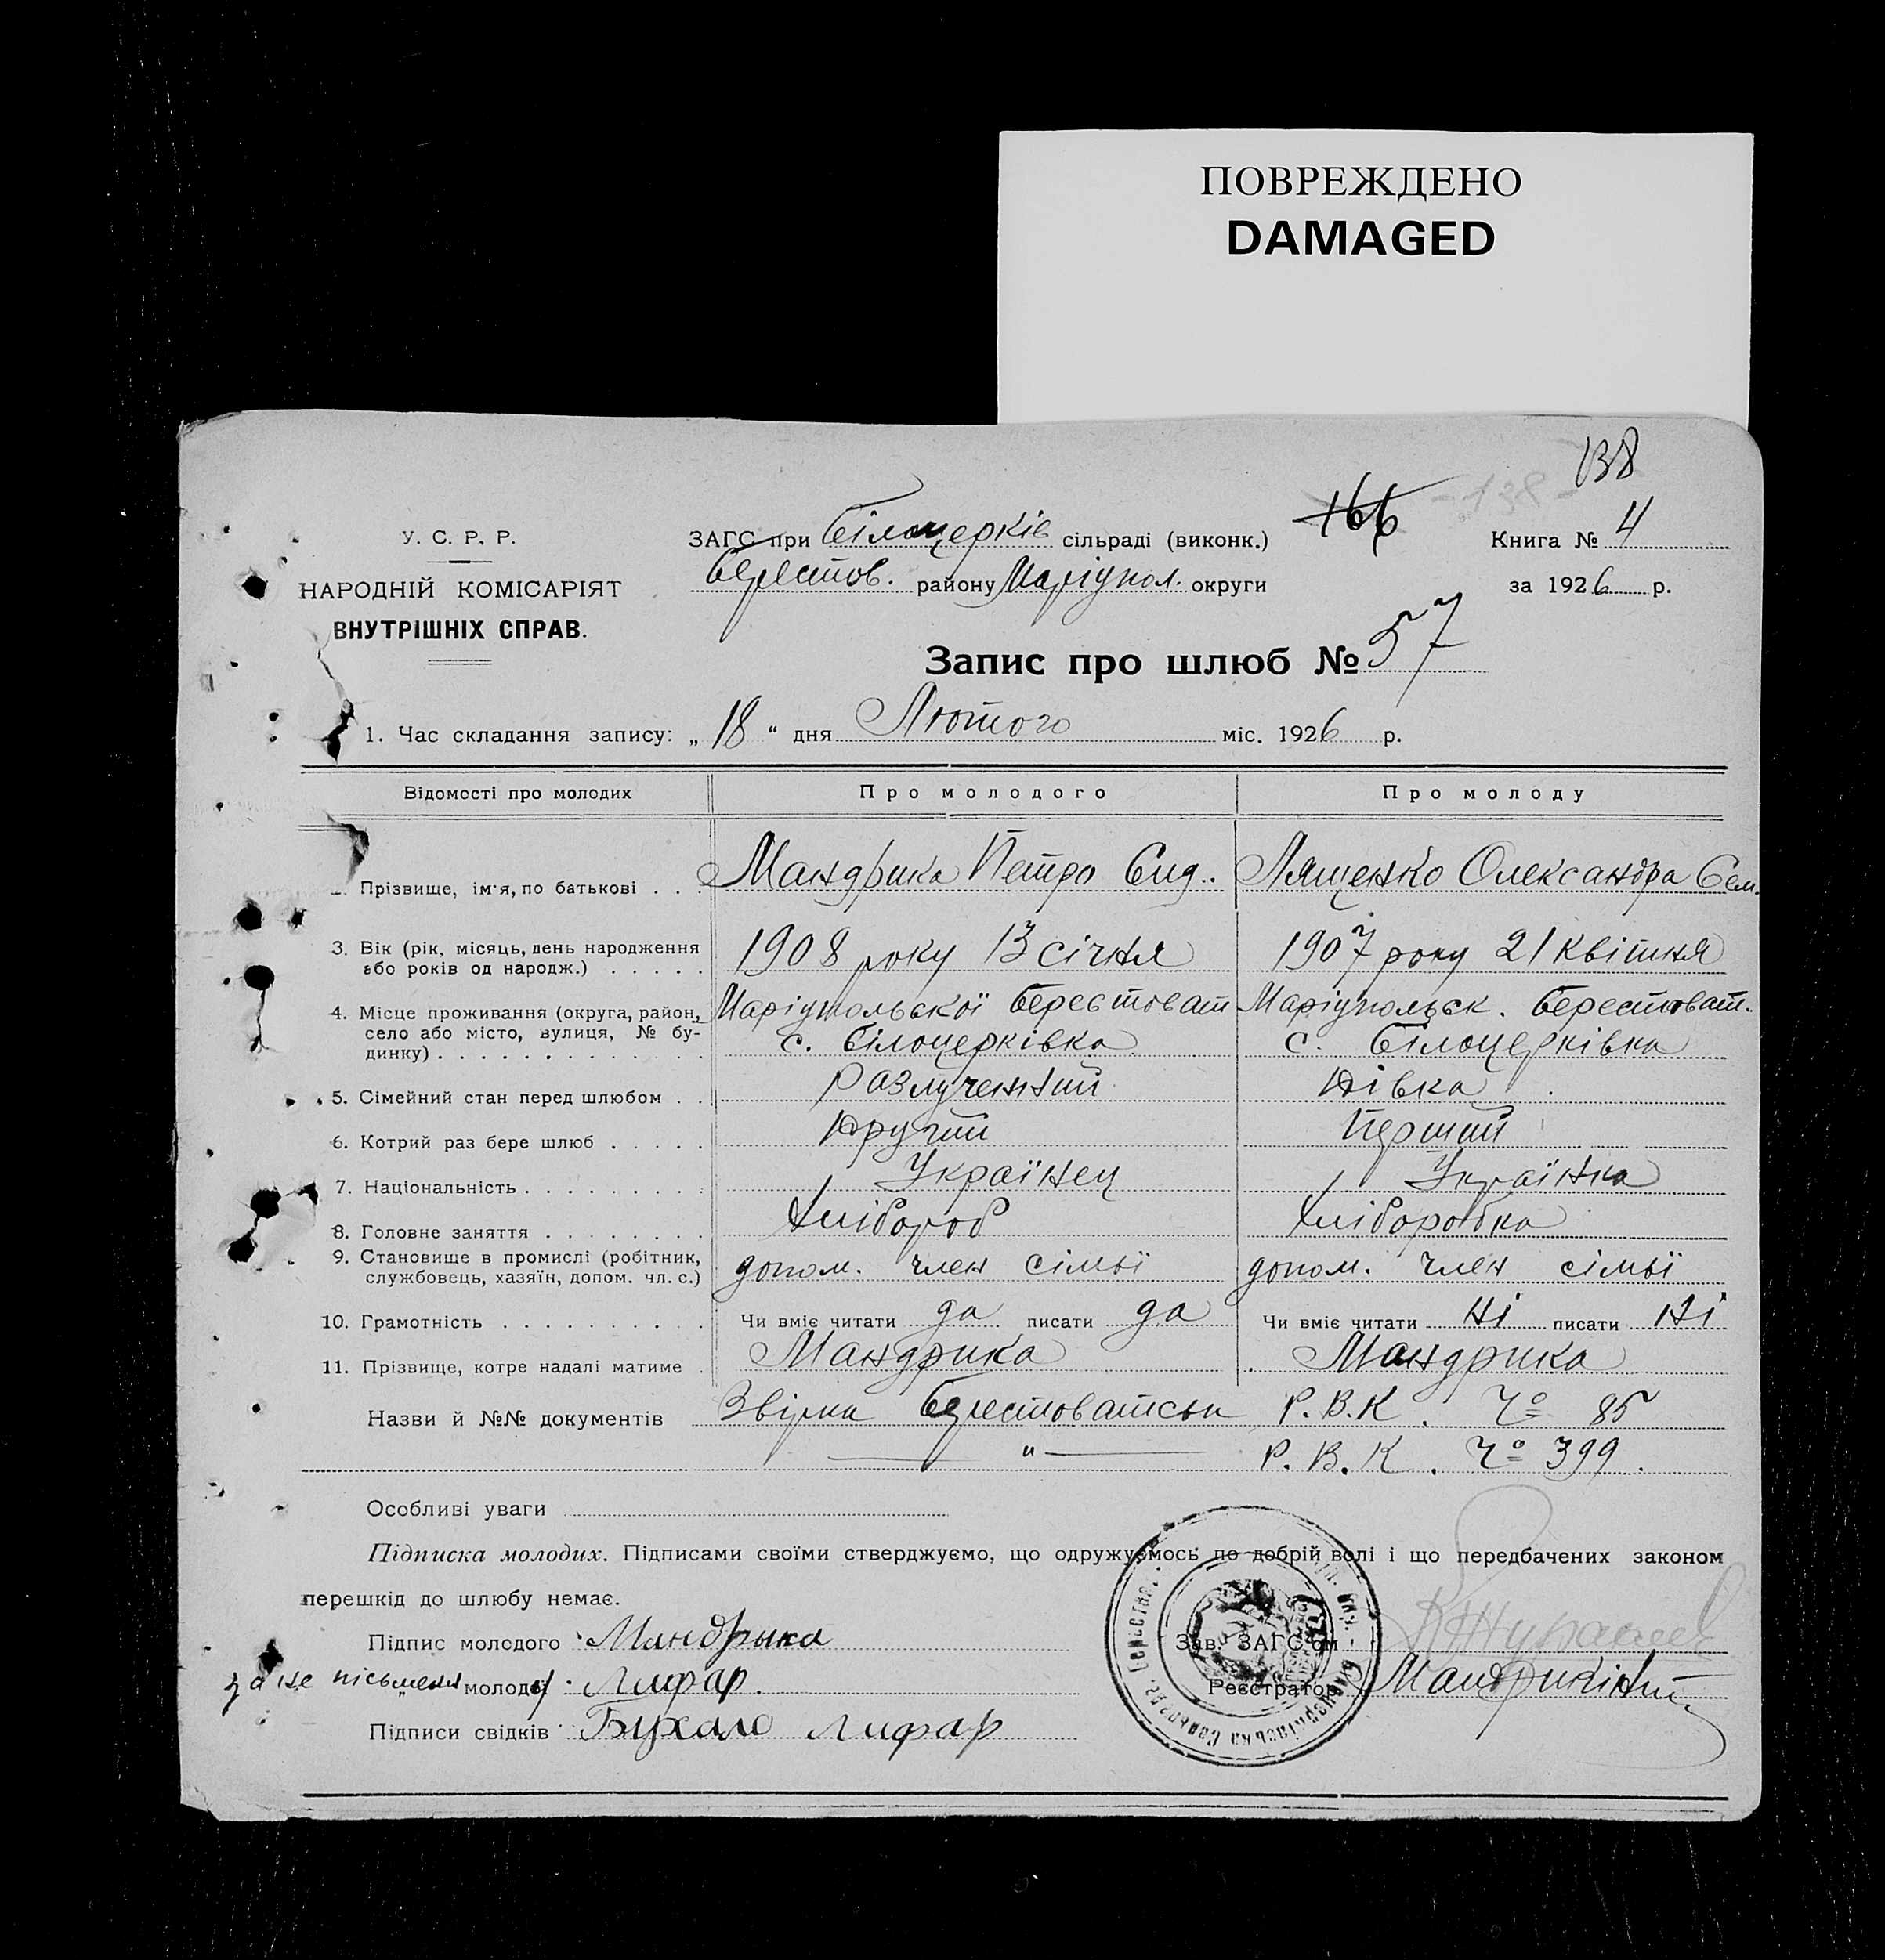 ПОВРЕЖДЕНО
DAMAGED
138
-138-
166
У. С. Р. Р.
НАРОДНІЙ КОМІСАРІЯТ
ВНУТРІШНІХ СПРАВ.
ЗАГС при Білоцерків сільраді (виконк.)
Берестов. району Маріупол. округи
Книга № 4
за 1926 р.
Запис про шлюб № 57
1. Час складання запису: „ 18 “ дня Лютого міс. 1926 р.
Відомості про молодих Про молодого Про молоду
Прізвище, ім'я, по батькові . . Мандрика Петро Сид.. Лященко Олександра Сем.
3. Вік (рік, місяць, день народження
або років од народж.) . . . . . 1908 року 13 січня 1907 року 21 квітня
4. Місце проживання (округа, район, Маріупольської Берестоват Маріупольск. Берестоват..
село або місто, вулиця, № бу-
динку) . . . . . . . . . . . . . с. Білоцерківка с. Білоцерківка
5. Сімейний стан перед шлюбом . . Разлученний Дівка
6. Котрий раз бере шлюб . . . . . Другий Перший
7. Національність . . . . . . . . . Українец Українка
8. Головне заняття . . . . . . . . Хлібороб Хліборобка
9. Становище в промислі (робітник,
службовець, хазяїн, допом. чл. с.) допом. член сімьї допом. член сімьї
10. Грамотність . . . . . . . . . . Чи вміє читати да писати да Чи вміє читати Ні писати Ні
11. Прізвище, котре надалі матиме . Мандрика Мандрика
Назви й №№ документів Звірка Берестоватськ Р.В.К. Ч° 85
" Р.В.К. Ч° 399.
Особливі уваги
Підписка молодих. Підписами своїми стверджуємо, що одружуємось по добрій волі і що передбачених законом
перешкід до шлюбу немає.
Підпис молодого Мандрыка
Зав. ЗАГС'ом
за не письмен молоду Лифар.
Реєстратор
Підписи свідків Бухало Лифар